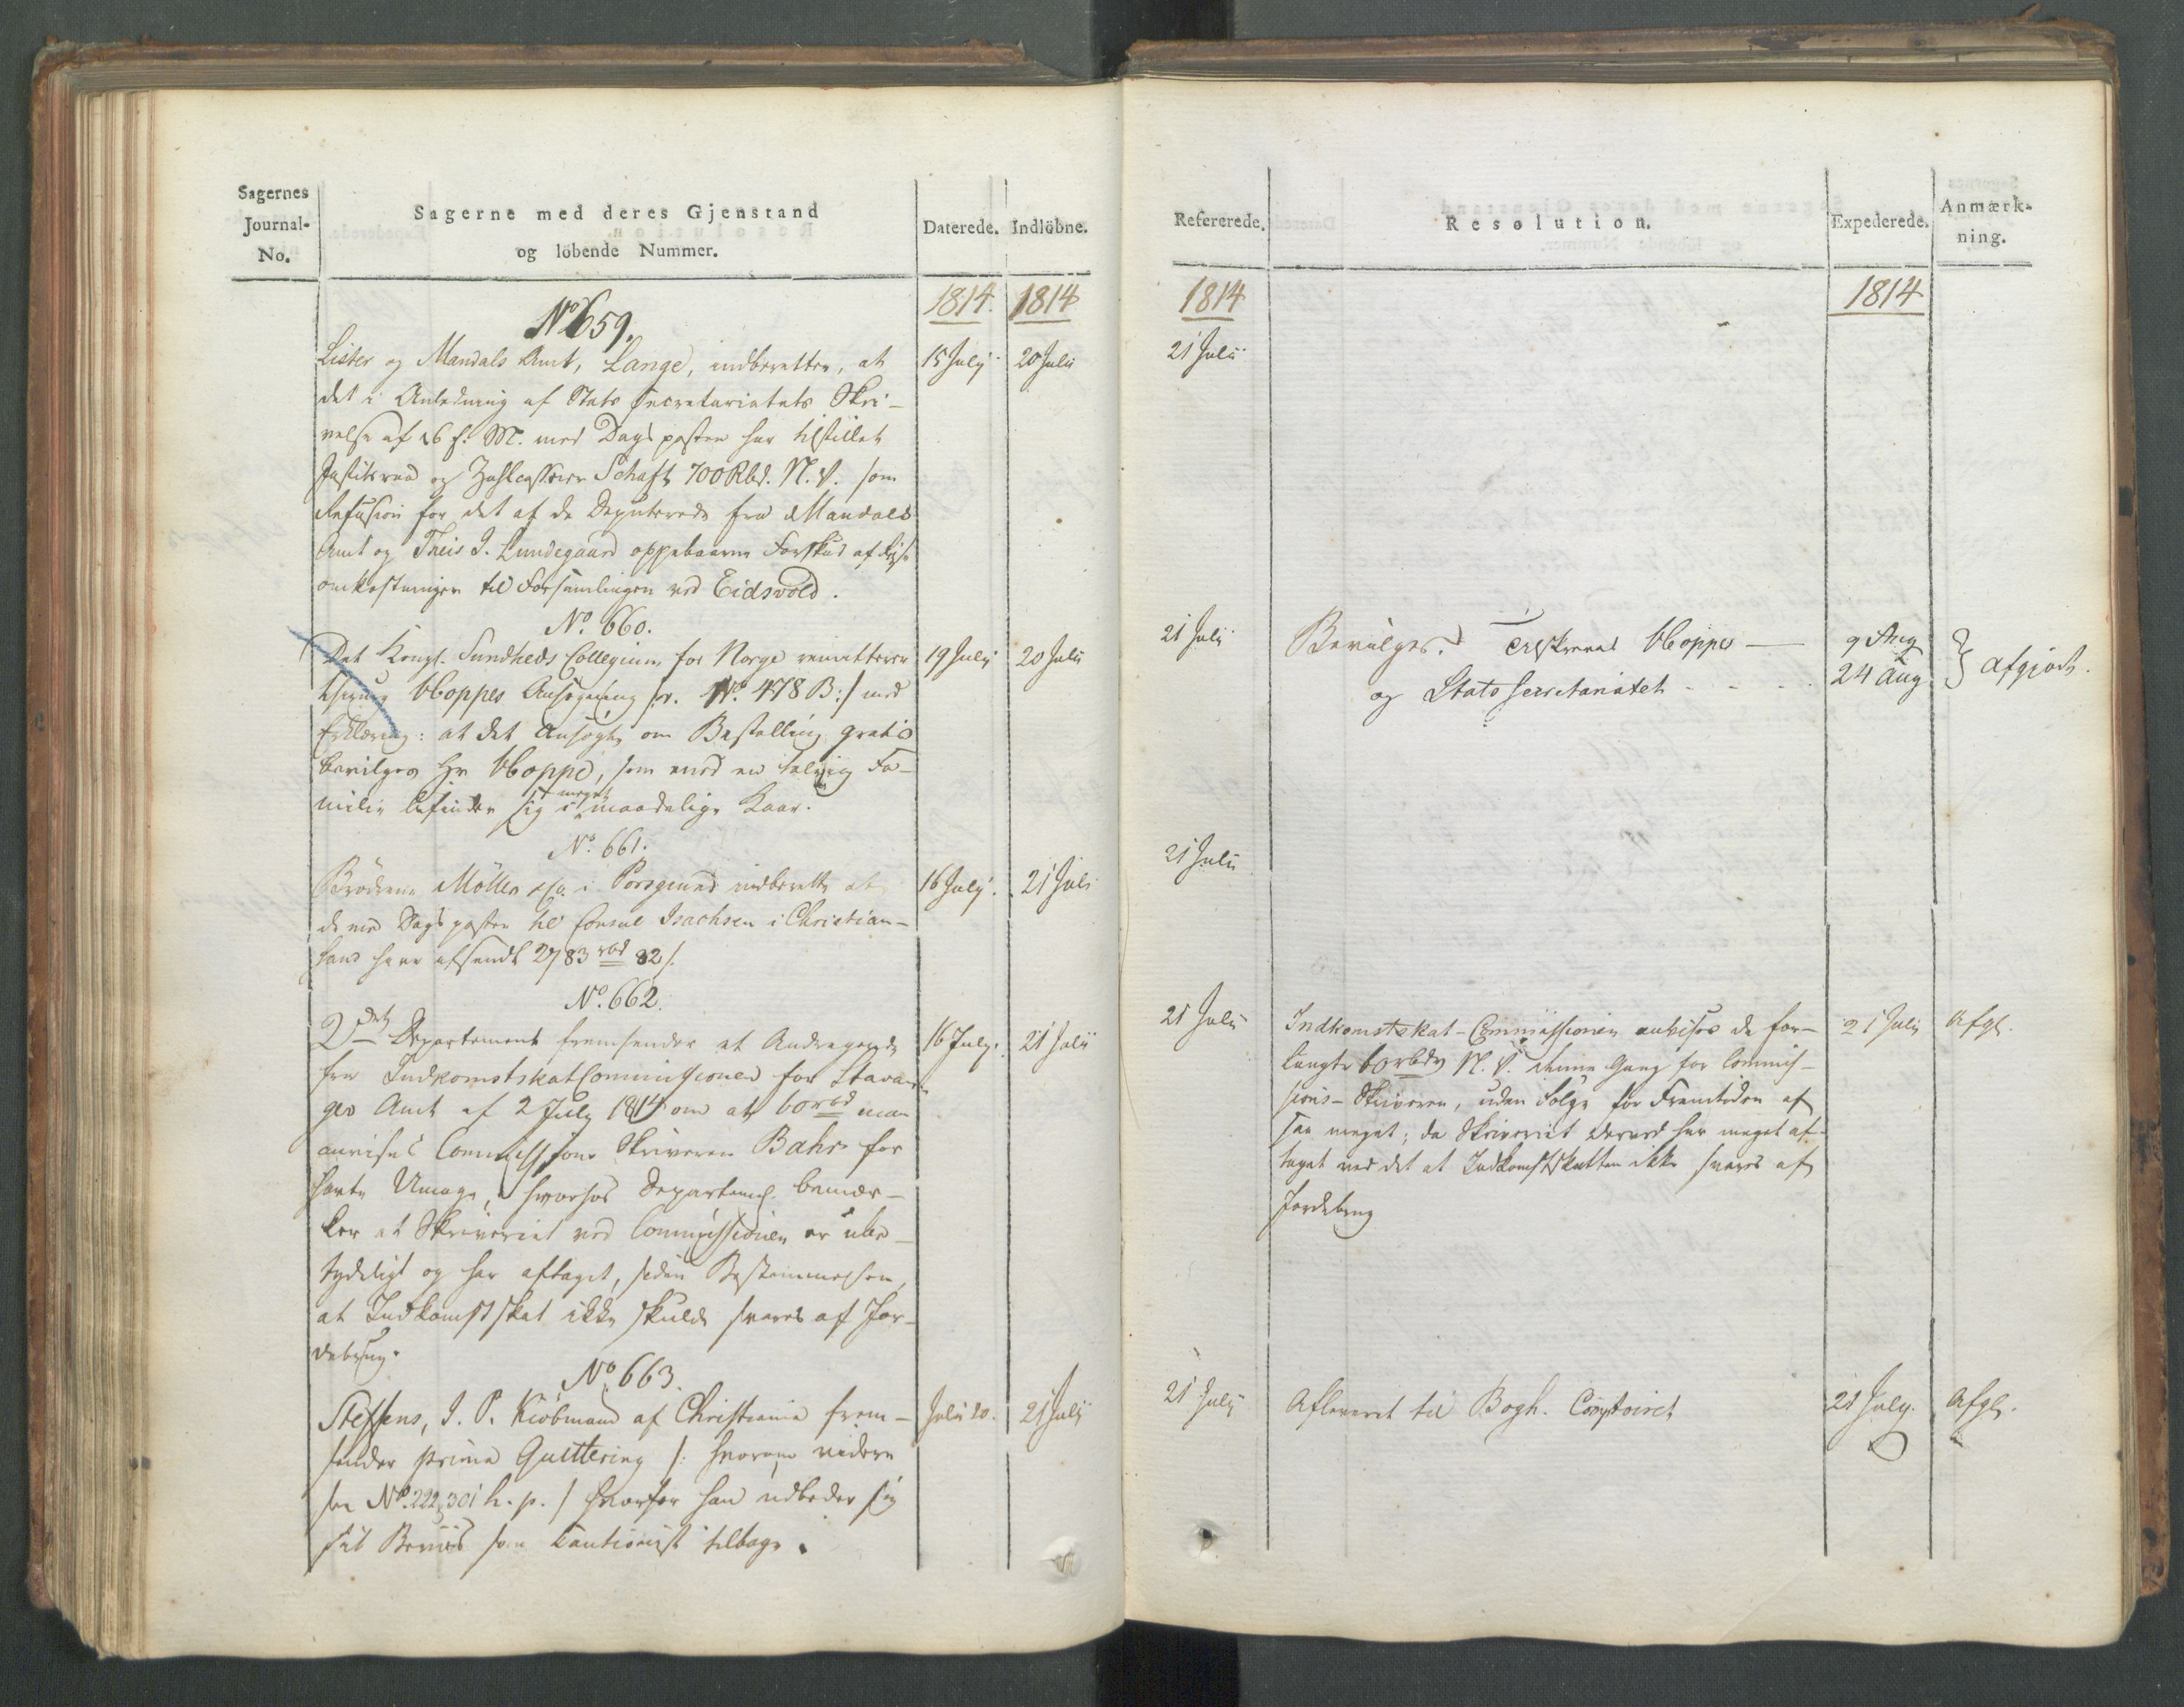 Sagernes
Journal-
No.
Sagerne med deres Gjenstand
og löbende Nummer.
Daterede.
Indlöbne.
1814.
1814
No 659.
Lister og Mandals Amt, Lange, indberetter, at
15 July
20 Julii
det i Anledning af Stats Secretariatets Skri-
velse af 16 f. M. med Dags posten har tilstillet
Justitsraad og Zahlcasserer Schaft 700 Rbd. N. V. som
Refusion for det af de Deputerede fra Mandals
Amt og Theis J. Lundegaard oppebaarne Forskud af Reise
omkostninger til Forsamlingen ved Eidsvold.
No. 660.
Det Kongl. Sundheds Collegium for Norge remitterer
19 July
20 Julii
Hoppes Ansøgning No. 478 B:/ med
Erklæring: at det ansøgte om Bestalling gratis
bevilges Hr Hoppe, som med en talrig Fa-
milie befinder sig i meget maadelige Kaar.
No. 661.
Brödrene Möller & Co. i Porsgrund indberette at
16 July.
21 Juli
de med Dags posten til Consul Isachsen i Christian-
sand have afsendt 2783 rbd 32 s.
No. 662.
2det Departement fremsender et Andragende
16 July.
21 Julii
fra IndkomstskatCommissionen for Stavan-
gers Amt af 2 July 1814 om at 60 rbd maa
anvises Commissions Skriveren Bahr for
havte Umage, hvorhos Departem. bemær-
ker at Skriveriet ved Commissionen er ube-
tydeligt og har aftaget, siden Bestemmelsen,
at Indkomstskat ikke skulde svares af Jor-
debrug.
No 663.
Steffens, J. P. Kiöbmand af Christiania frem-
Julii 20.
21 Julij
sender prima Quittering /: hvorom videre
see No. 222, 301 h. p. / hvorfor han udbeder sig
sit Beviis som Cautionist tilbage.
Refererede.
Resolution.
Expederede.
Anmærk-
ning.
1814
1814
21 Julii
21 Julij
Bevilges. Hoppe —
9 Aug
og Stats Secretariatet - - -
24 Aug
afgjort.
21 Julii
21 Julii
Indkomstskat-Commissionen anvises de for-
21 Julij
Afgt.
langte 60 rbdr N. V. denne Gang for Commis-
sions-Skriveren, uden Følge for Fremtiden af
saa meget; da Skriveriet derved har meget af-
taget ved det at Indkomstskatten ikke svares af
Jordebrug
21 July
Afleveret til Bogh. Comptoiret
21 July.
Afgt.